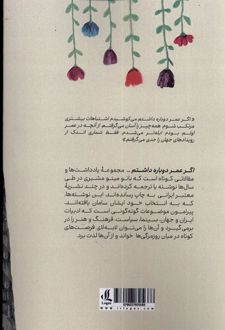 «اگر عمر دوباره داشتم می‌کوشیدم اشتباهات بیشتری
مرتکب شوم. همه چیز را آسان می‌گرفتم. از آنچه در عمر
اولم بودم ابله‌تر می‌شدم. فقط شماری اندک از
رویدادهای جهان را جدی می‌گرفتم»
اگر عمر دوباره داشتم ... مجموعهٔ یادداشت‌ها و
مقالاتی کوتاه است که بانو مینو مشیری در طی
سال‌ها نوشته یا ترجمه کرده‌اند و در چند نشریهٔ
معتبر ایرانی به چاپ رسانده‌اند. این نوشته‌ها،
که به انتخاب خود ایشان سامان یافته‌اند،
پیرامون موضوعات گونه‌گونی است که ادبیات
ایران و جهان، سینما، سیاست، فرهنگ و هنر را در
برمی‌گیرد و آن‌ها را می‌توان لابه‌لای فرصت‌های
کوتاه در میان روزمرگی‌ها خواند و از آن‌ها لذت برد.
Logos
www.irlogos.com